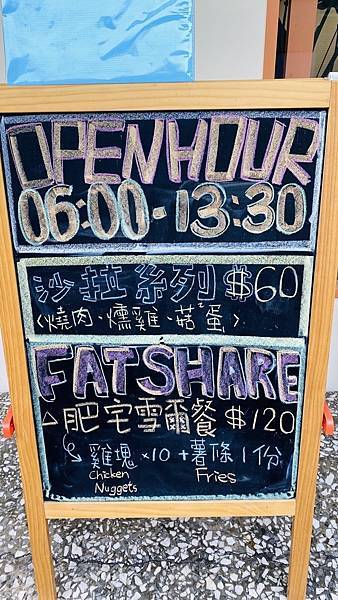 OPEN HOUR
06:00-13:30
沙拉系列 $60
〈燒肉、燻雞、菇蛋〉
FAT SHARE
△肥宅雪爾餐 $120
雞塊 x10 +薯條 1份
Chicken Nuggets
Fries